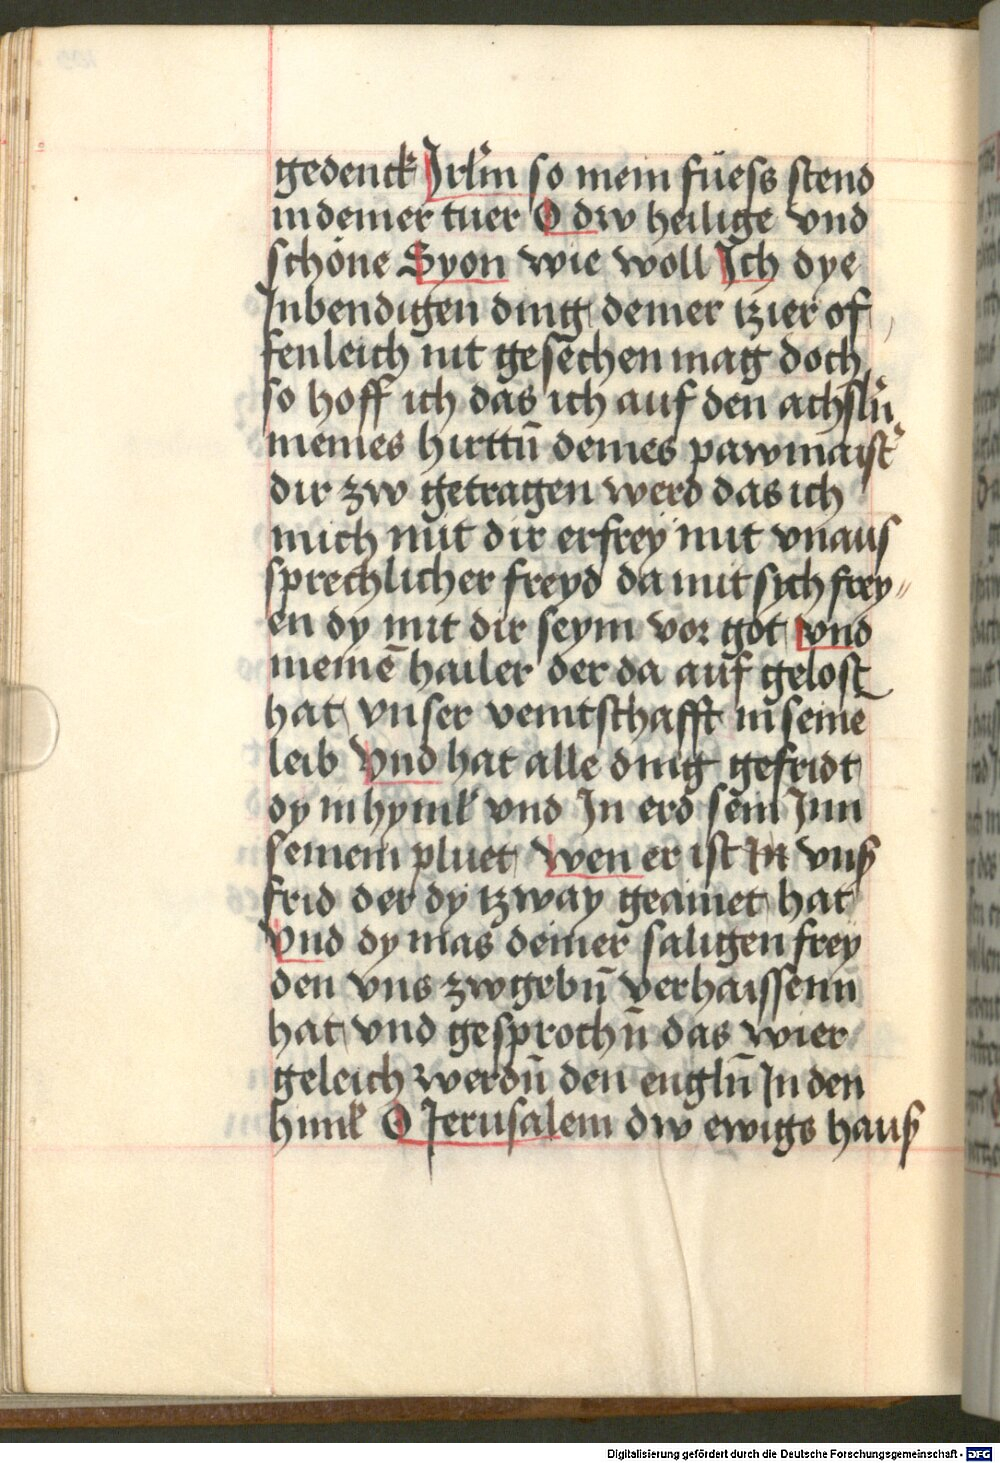 gedenck Jrl̃m so mein füess stend
in deiner tuer O dw heilige vnd
schöne Syon wie woll Jch dye
Jnbendigen ding deiner tzier of
fenleich nit gesechen mag doch
so hoff ich das ich auf den achsln̄
meines hirttn̄ deines pawmaist̉
dir zw getragen werd das ich
mich mit dir erfrey mit vnaus
sprechlicher freyd da mit sych frey〃
en dy mit dir seym vor got vnd
meinē hailer der da auf gelost
hat vnser veintschafft in seinē
leib Vnd hat alle ding gefridt
dy in hyml̄ vnd Jn erd sein Jnn
seinem pluet wen er ist Jn vnß
frid der dy tzway geainet hat
Vnd dy mas deiner saligen frey
den vns zwgebn̄ verhaissenn
hat vnd gesprochn̄ das wier
geleich werdn̄ den engln̄ Jn den
himl̄ O Jerusalem dw ewigs hauß
Digitalisierung gefördert durch die Deutsche Forschungsgemeinschaft - DFG